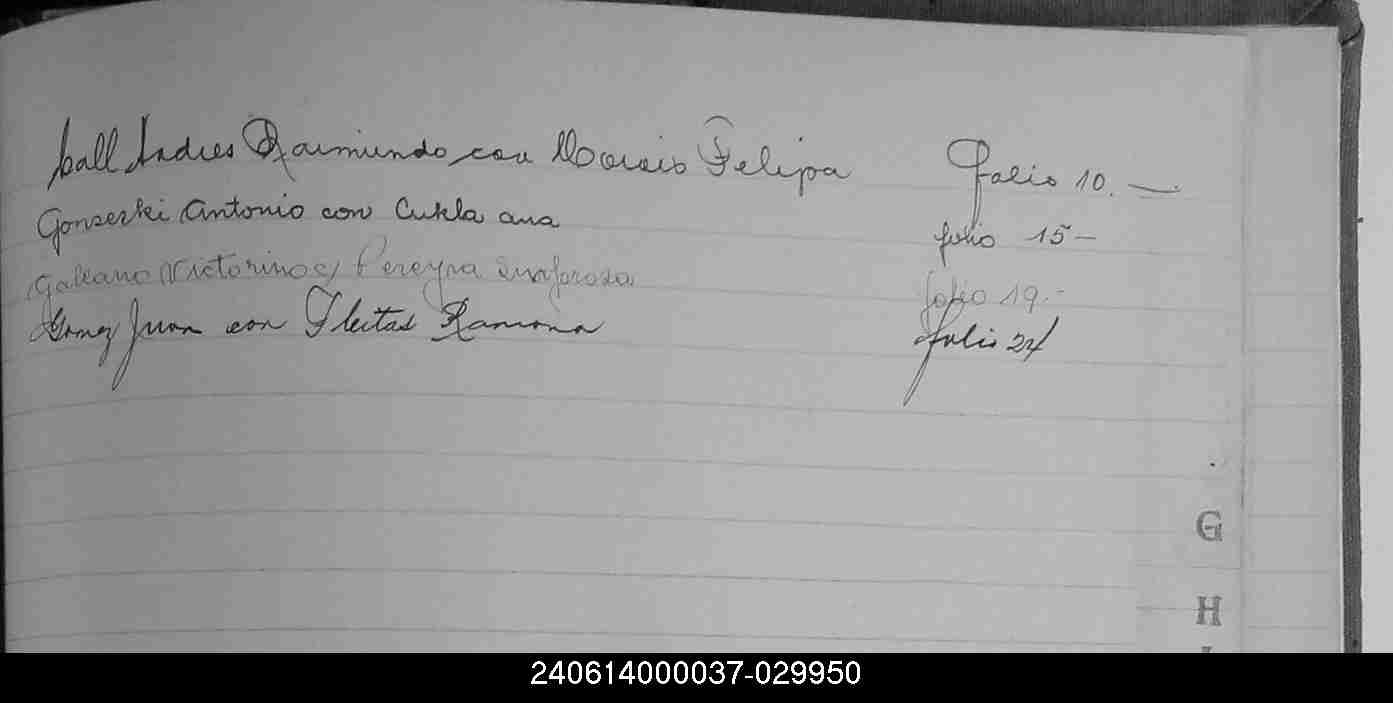 Gall Andres Raimundo con Morais Felipa folio 10. —
Gonserki Antonio con Cukla ana folio 15 —
Galeano Victorino c/ Pereyra Sinforosa folio 19.-
Gomez Juan con Fleitas Ramona folio 24
G
H
240614000037-029950